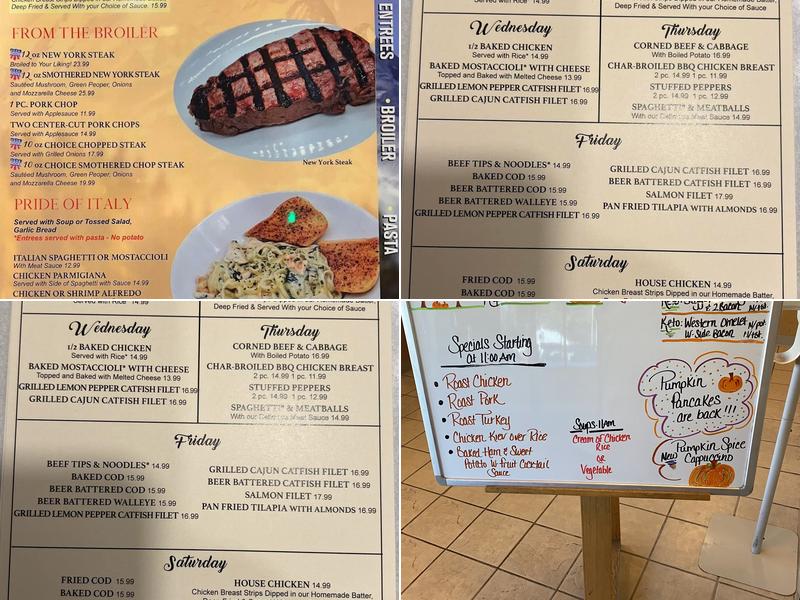 Deep Fried & Served With Your Choice of Sauce. 15.99
FROM THE BROILER
12 oz NEW YORK STEAK
Broiled to Your Liking! 23.99
12 oz SMOTHERED NEW YORK STEAK
Sautéed Mushroom, Green Peoper, Onions
and Mozzarella Cheese 25.99
1 PC. PORK CHOP
Served with Applesauce 11.99
TWO CENTER-CUT PORK CHOPS
Served with Applesauce 14.99
10 oz CHOICE CHOPPED STEAK
Served with Grilled Onions 17.99
10 oz CHOICE SMOTHERED CHOP STEAK
Sautéed Mushroom, Green Peoper, Onions
and Mozzarella Cheese 19.99
New York Steak
PRIDE OF ITALY
Served with Soup or Tossed Salad,
Garlic Bread
*Entrees served with pasta - No potato
ITALIAN SPAGHETTI OR MOSTACCIOLI
With Meat Sauce 12.99
CHICKEN PARMIGIANA
Served with Side of Spaghetti with Sauce 14.99
CHICKEN OR SHRIMP ALFREDO
ENTREES • BROILER • PASTA
Served with Rice* 14.99
Deep Fried & Served with Your Choice of Sauce
Wednesday
1/2 BAKED CHICKEN
Served with Rice* 14.99
BAKED MOSTACCIOLI* WITH CHEESE
Topped and Baked with Melted Cheese 13.99
GRILLED LEMON PEPPER CATFISH FILET 16.99
GRILLED CAJUN CATFISH FILET 16.99
Thursday
CORNED BEEF & CABBAGE
With Boiled Potato 16.99
CHAR-BROILED BBQ CHICKEN BREAST
2 pc. 14.99 1 pc. 11.99
STUFFED PEPPERS
2 pc. 14.99 1 pc. 12.99
SPAGHETTI* & MEATBALLS
With our Delicious Meat Sauce 14.99
Friday
BEEF TIPS & NOODLES* 14.99
BAKED COD 15.99
BEER BATTERED COD 15.99
BEER BATTERED WALLEYE 15.99
GRILLED LEMON PEPPER CATFISH FILET 16.99
GRILLED CAJUN CATFISH FILET 16.99
BEER BATTERED CATFISH FILET 16.99
SALMON FILET 17.99
PAN FRIED TILAPIA WITH ALMONDS 16.99
Saturday
FRIED COD 15.99
BAKED COD 15.99
HOUSE CHICKEN 14.99
Chicken Breast Strips Dipped in our Homemade Batter,
Served with Rice* 14.99
Deep Fried & Served with Your Choice of Sauce
Wednesday
1/2 BAKED CHICKEN
Served with Rice* 14.99
BAKED MOSTACCIOLI* WITH CHEESE
Topped and Baked with Melted Cheese 13.99
GRILLED LEMON PEPPER CATFISH FILET 16.99
GRILLED CAJUN CATFISH FILET 16.99
Thursday
CORNED BEEF & CABBAGE
With Boiled Potato 16.99
CHAR-BROILED BBQ CHICKEN BREAST
2 pc. 14.99 1 pc. 11.99
STUFFED PEPPERS
2 pc. 14.99 1 pc. 12.99
SPAGHETTI* & MEATBALLS
With our Delicious Meat Sauce 14.99
Friday
BEEF TIPS & NOODLES* 14.99
BAKED COD 15.99
BEER BATTERED COD 15.99
BEER BATTERED WALLEYE 15.99
GRILLED LEMON PEPPER CATFISH FILET 16.99
GRILLED CAJUN CATFISH FILET 16.99
BEER BATTERED CATFISH FILET 16.99
SALMON FILET 17.99
PAN FRIED TILAPIA WITH ALMONDS 16.99
Saturday
FRIED COD 15.99
BAKED COD 15.99
HOUSE CHICKEN 14.99
Chicken Breast Strips Dipped in our Homemade Batter,
Specials Starting
at 11:00 Am
• Roast Chicken
• Roast Pork
• Roast Turkey
• Chicken Kiev over Rice
• Baked Ham & Sweet
Potato W-Fruit Cocktail
Sauce
Soups-11Am
Cream of Chicken
Rice
or
Vegetable
Keto: Western Omelet
W-Side Bacon
Pumpkin
Pancakes
are back!!!
New Pumpkin Spice
Cappuccino